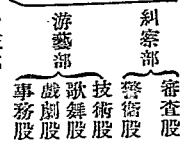 糾察部
審查股
警衛股
游藝部
技術股
歌舞股
戲劇股
事務股